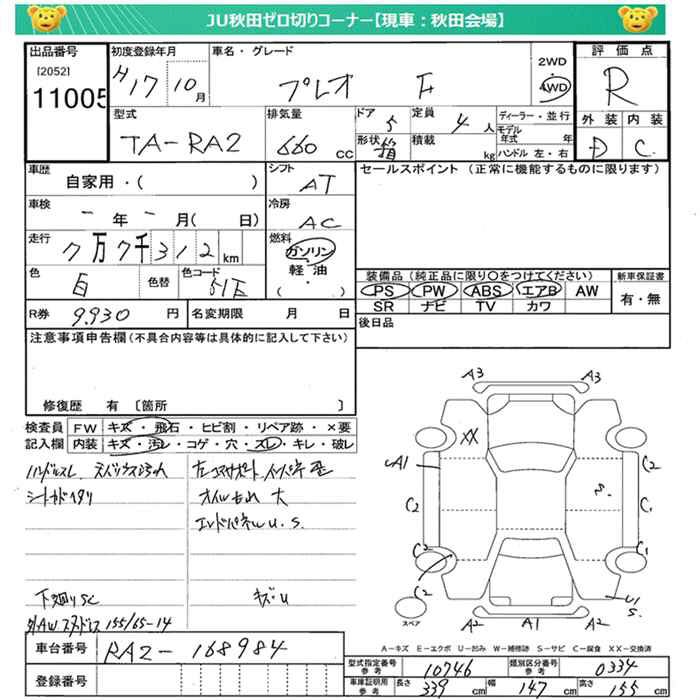 JU秋田ゼロ切りコーナー【現車：秋田会場】
出品番号
[2052]
11005
初度登録年月
H17 10月
車名・グレード
プレオ F
2WD
4WD
評価点
R
型式
TA-RA2
排気量
660 cc
ドア
5
定員
4人
形状
箱
積載
kg
ディーラー・並行
モデル年式 年
ハンドル 左・右
外装 内装
D C
車歴
自家用・( )
シフト
AT
セールスポイント (正常に機能するものに限ります)
車検
ー年ー月( 日)
冷房
AC
走行
7万7千312km
燃料
ガソリン
軽油
( ・ )
色
白
色替
色コード
51E
装備品(純正品に限り○をつけてください)
PS PW ABS エアB AW
SR ナビ TV カワ
新車保証書
有・無
R券
9,930 円
名変期限 月 日
後日品
注意事項申告欄(不具合内容等は具体的に記入して下さい)
修復歴 有 〔箇所 〕
検査員記入欄
FW キズ・飛石・ヒビ割・リペア跡・×要
内装 キズ・汚レ・コゲ・穴・スレ・キレ・破レ
ハンドルスレ
シートカドヘタリ
左コアサポート、インパネ 歪
オイルもれ 大
エンドパネルU.S.
下廻りSC
キズ・U
外AW スタッドレス 155/65-14
A3 A3
XX
A1
C2
C2
C2
C1
C1
S
U1
S.
A2 A1 A2
スペア
A－キズ E－エクボ U－凹み W－補修跡 S－サビ C－腐食 XX－交換済
車台番号
RA2-168984
登録番号
型式指定番号 参考
10746
類別区分番号 参考
0334
車庫証明用 参考
長さ 339 cm
幅 147 cm
高さ 155 cm